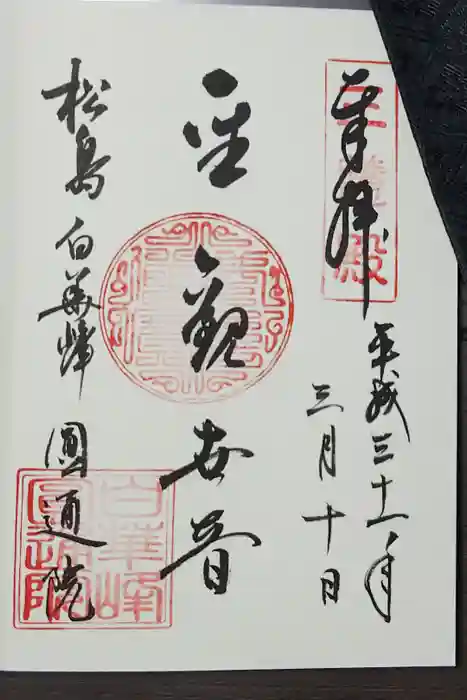 奉拝
三慧殿
平成三十一年
三月十日
聖観世音
松島 白華峰 圓通院
白華峰
圓通院